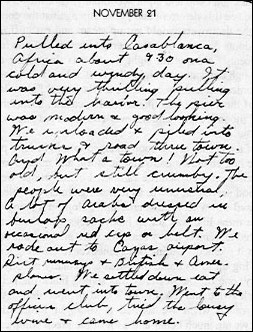 NOVEMBER 21
Pulled into Casablanca,
Africa about 9:30 on a
cold and windy day. It
was very thrilling pulling
into the harbor. The pier
was modern & good looking.
We unloaded & piled into
trucks & road three town.
And what a town! Not too
old, but still crumby. The
people were very unusual.
A lot of arabs dressed in
burlap sacks with an
occasional red cap or belt. We
rode out to Cazas airport.
Dirt runways & British & Amer.
planes. We settled down eat
and went into town. Went to the
officers club, tried the lousy
wine & came home.